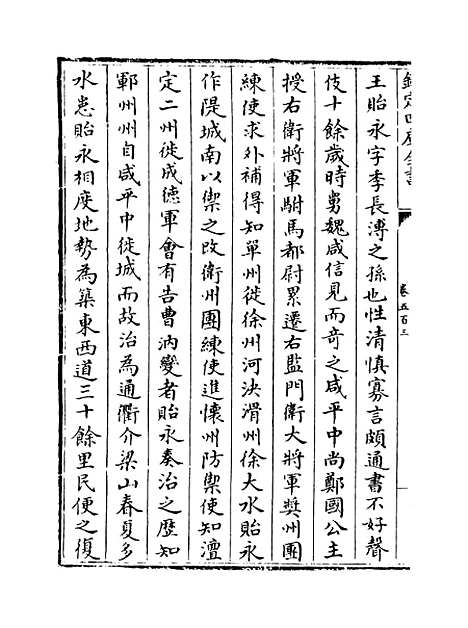 欽定四庫全書
卷五百三
王貽永字季長溥之孫也性清慎寡言頗通書不好聲
伎十餘歲時舅魏咸信見而奇之咸平中尚鄭國公主
授右衛將軍駙馬都尉累遷右監門衛大將軍奬州團
練使求外補得知單州徙徐州河決滑州徐大水貽永
作隄城南以禦之改衛州團練使進懷州防禦使知澶
定二州徙成德軍會有告曹汭變者貽永奏治之歷知
鄆州州自咸平中徙城而故治為通衢介梁山春夏多
水患貽永相度地勢為築東西道三十餘里民便之復